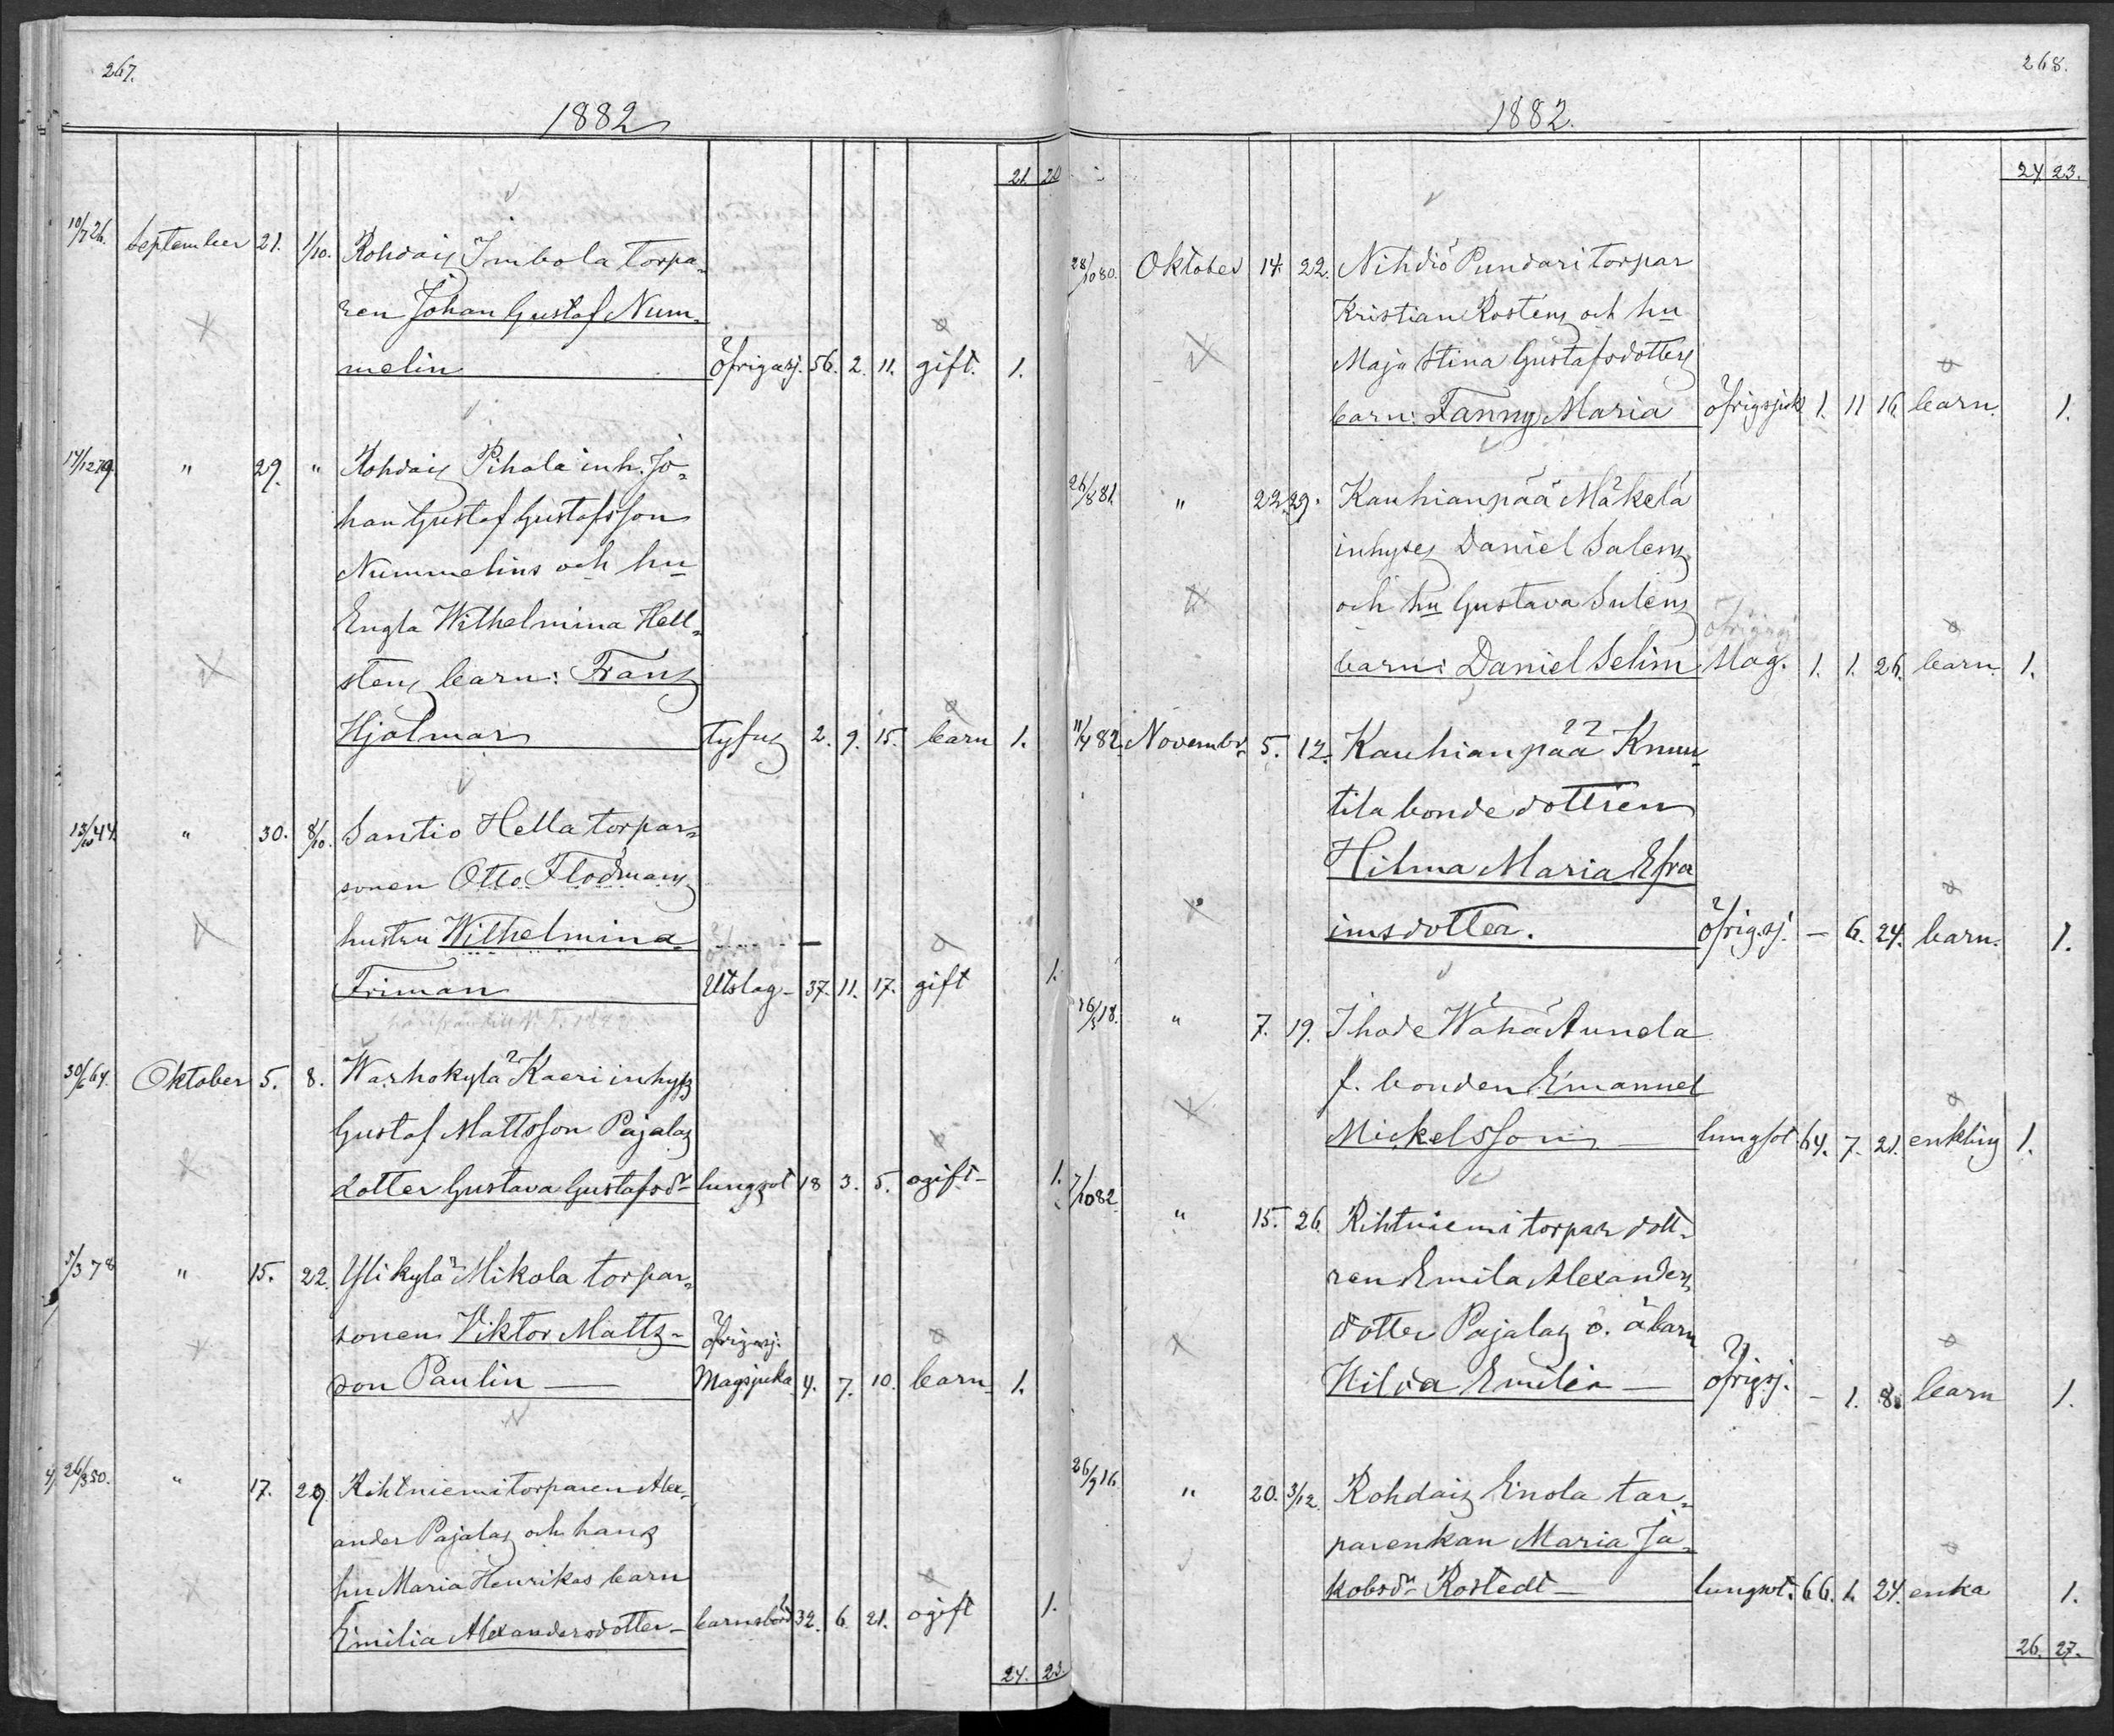 267.
1882
21. 20
10/7 26. September 21. 1/10. Rohdais Imbola torpa-
ren Johan Gustaf Num-
melin öfriga sj. 56. 2. 11. gift. 1.
14/12 79. " 29. " Rohdais Pihala inh. Jo-
han Gustaf Gustafsson
Nummelins och hu
Engla Wilhelmina Hell-
stens barn: Frans
Hjalmar tyfus 2. 9. 15. barn 1.
13/10 44. " 30. 8/10. Santio Hella torpar-
sonen Otto Flodmans
hustru Wilhelmina
Friman Utslag 37. 11. 17. gift 1.
30/6 64. Oktober 5. 8. Warhokylä Kaeri inhys
Gustaf Mattsson Pajalas
dotter Gustava Gustafsdr lungsot 18 3. 5. ogift 1.
5/3 78 " 15. 22. Ylikylä Mikola torpar-
sonen Viktor Matts- öfriga sj.
son Paulin Magsjuka 4. 7. 10. barn 1.
26/3 50. " 17. 29. Rihtniemi torparen Alex-
ander Pajalas och hans
hu Maria Henrikas barn
Emilia Alexandersdotter barnsbörd 32. 6. 21. ogift 1.
24. 23.
268.
1882.
24 23.
28/10 80. Oktober 14. 22. Nihdiö Pundari torpar
Kristian Rostens och hu
Maja Stina Gustafsdotters
barn: Fanny Maria öfrig sjuk 1. 11 16 barn. 1.
26/8 81. " 22. 29. Kauhianpää Mäkelä
inhyses Daniel Salens
och hu Gustava Salens öfriga sj
barn: Daniel Selim Mag. 1. 1. 26. barn. 1.
11/4 82. Novembr 5. 12. Kauhianpää Knuu-
tila bondedottren
Hilma Maria Efra
imsdotter. öfrig. sj. — 6. 24. barn. 1.
16/3 18. " 7. 19. Ihode Wähä Aunela
f. bonden Emanuel
Mickelsson lungsot 64. 7. 21. enkling 1.
7/10 82. " 15. 26. Rihtniemi torpar dott-
ren Emila Alexanders
dotter Pajalas o. ä barn
Hilda Emilia öfrig. sj. — 1. 8. barn 1.
26/9 16. " 20. 3/12. Rohdais Einola tor-
parenkan Maria Ja-
kobsdr Rostedt lungsot. 66. 1. 24. enka 1.
26. 27.